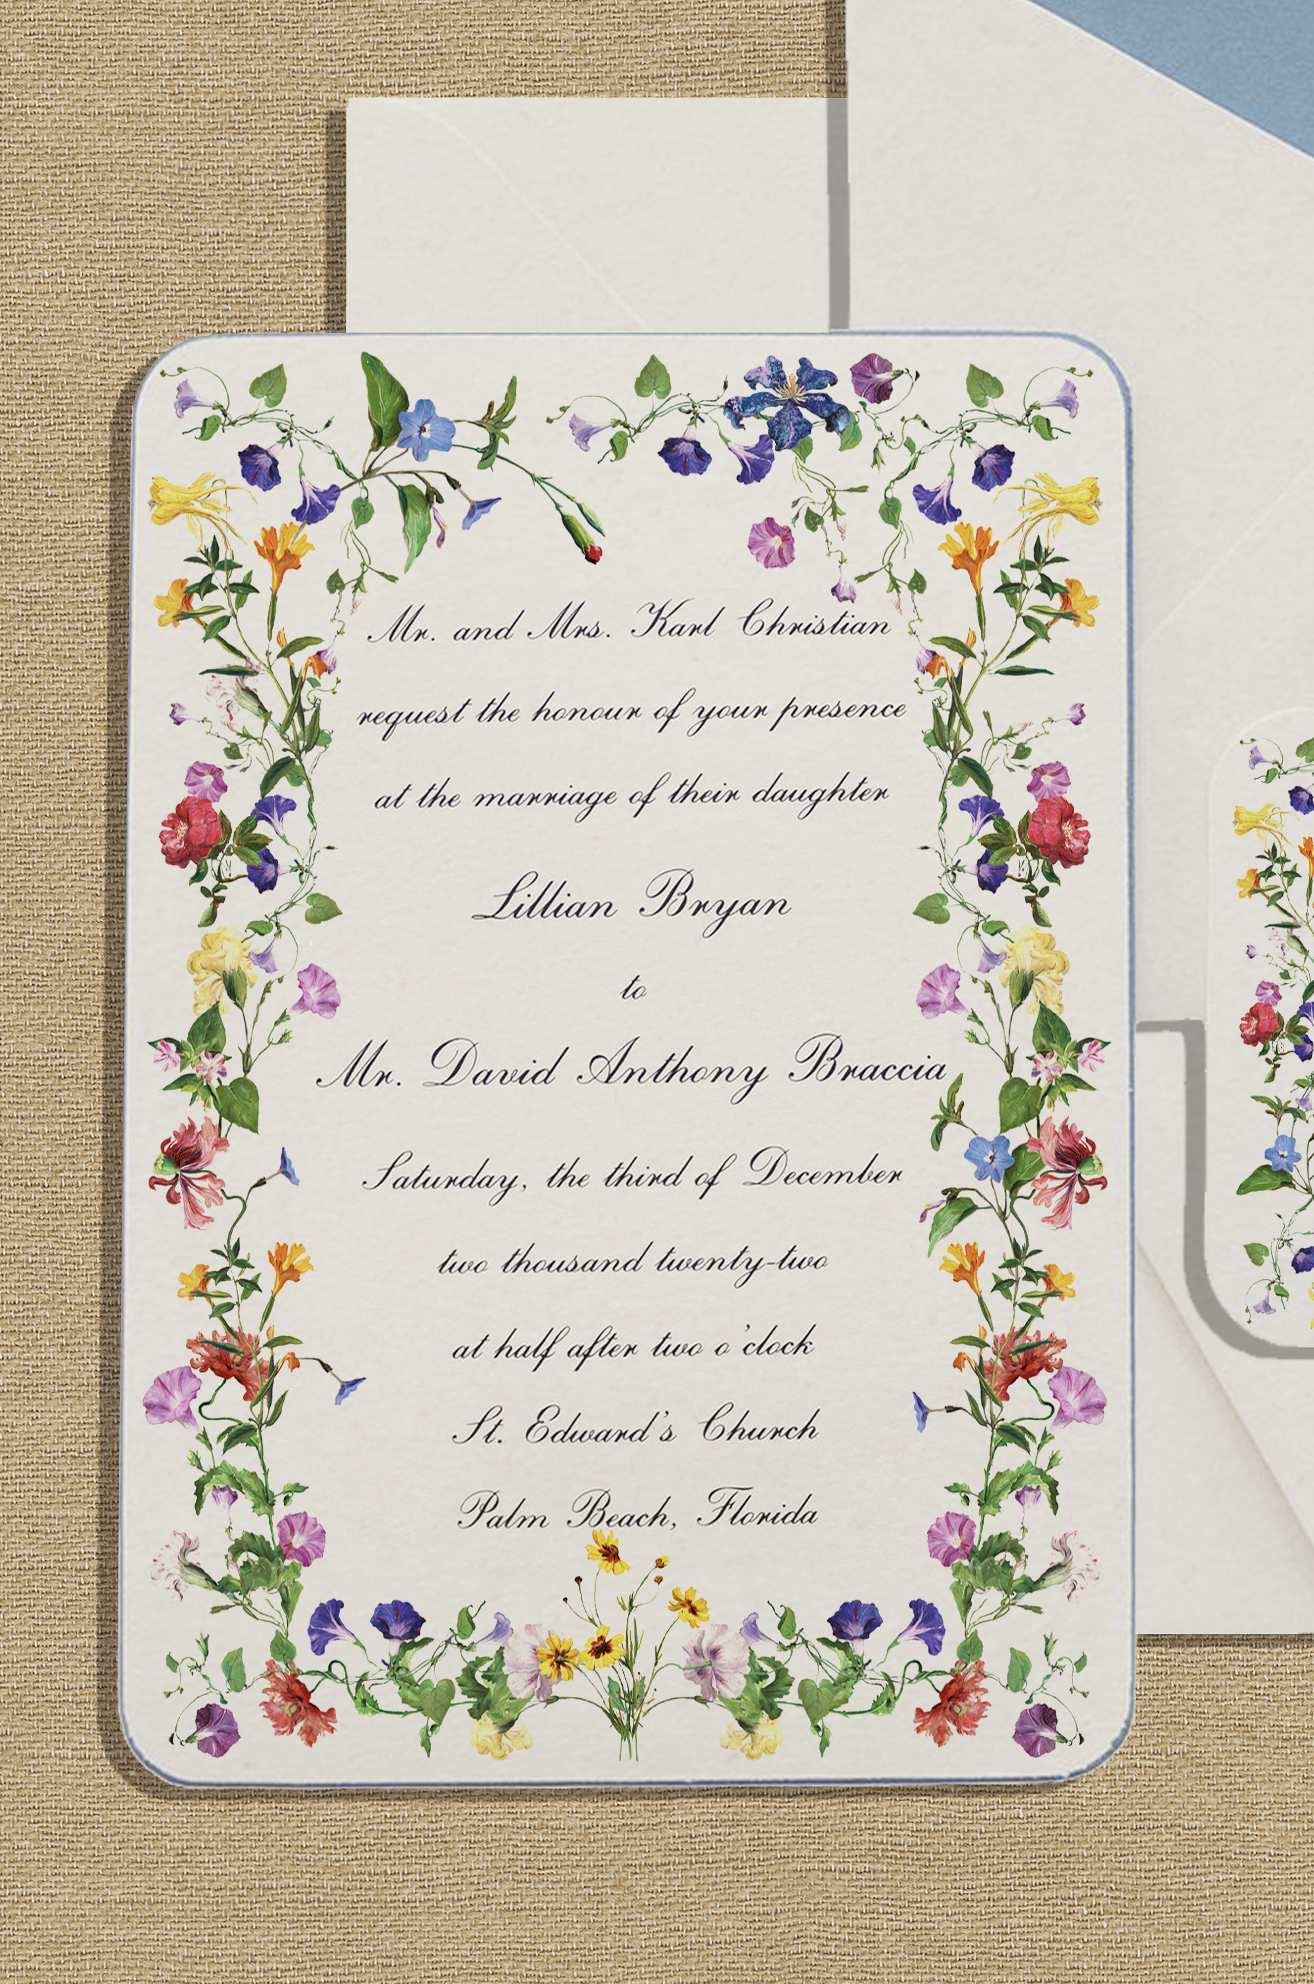 Mr. and Mrs. Karl Christian
request the honour of your presence
at the marriage of their daughter
Lillian Bryan
to
Mr. David Anthony Braccia
Saturday, the third of December
two thousand twenty-two
at half after two o'clock
St. Edward's Church
Palm Beach, Florida